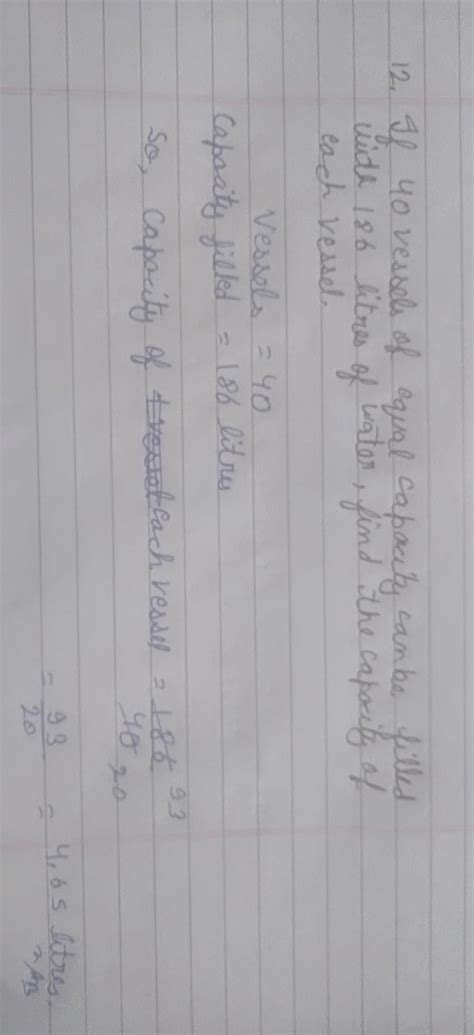 12. If 40 vessels of equal capacity can be filled
with 186 litres of water, find the capacity of
each vessel.
Vessels = 40
Capacity filled = 186 litres
So, Capacity of 1 vessel each vessel = 186 93
40 20
= 93 = 4.65 litres.
20 Ans